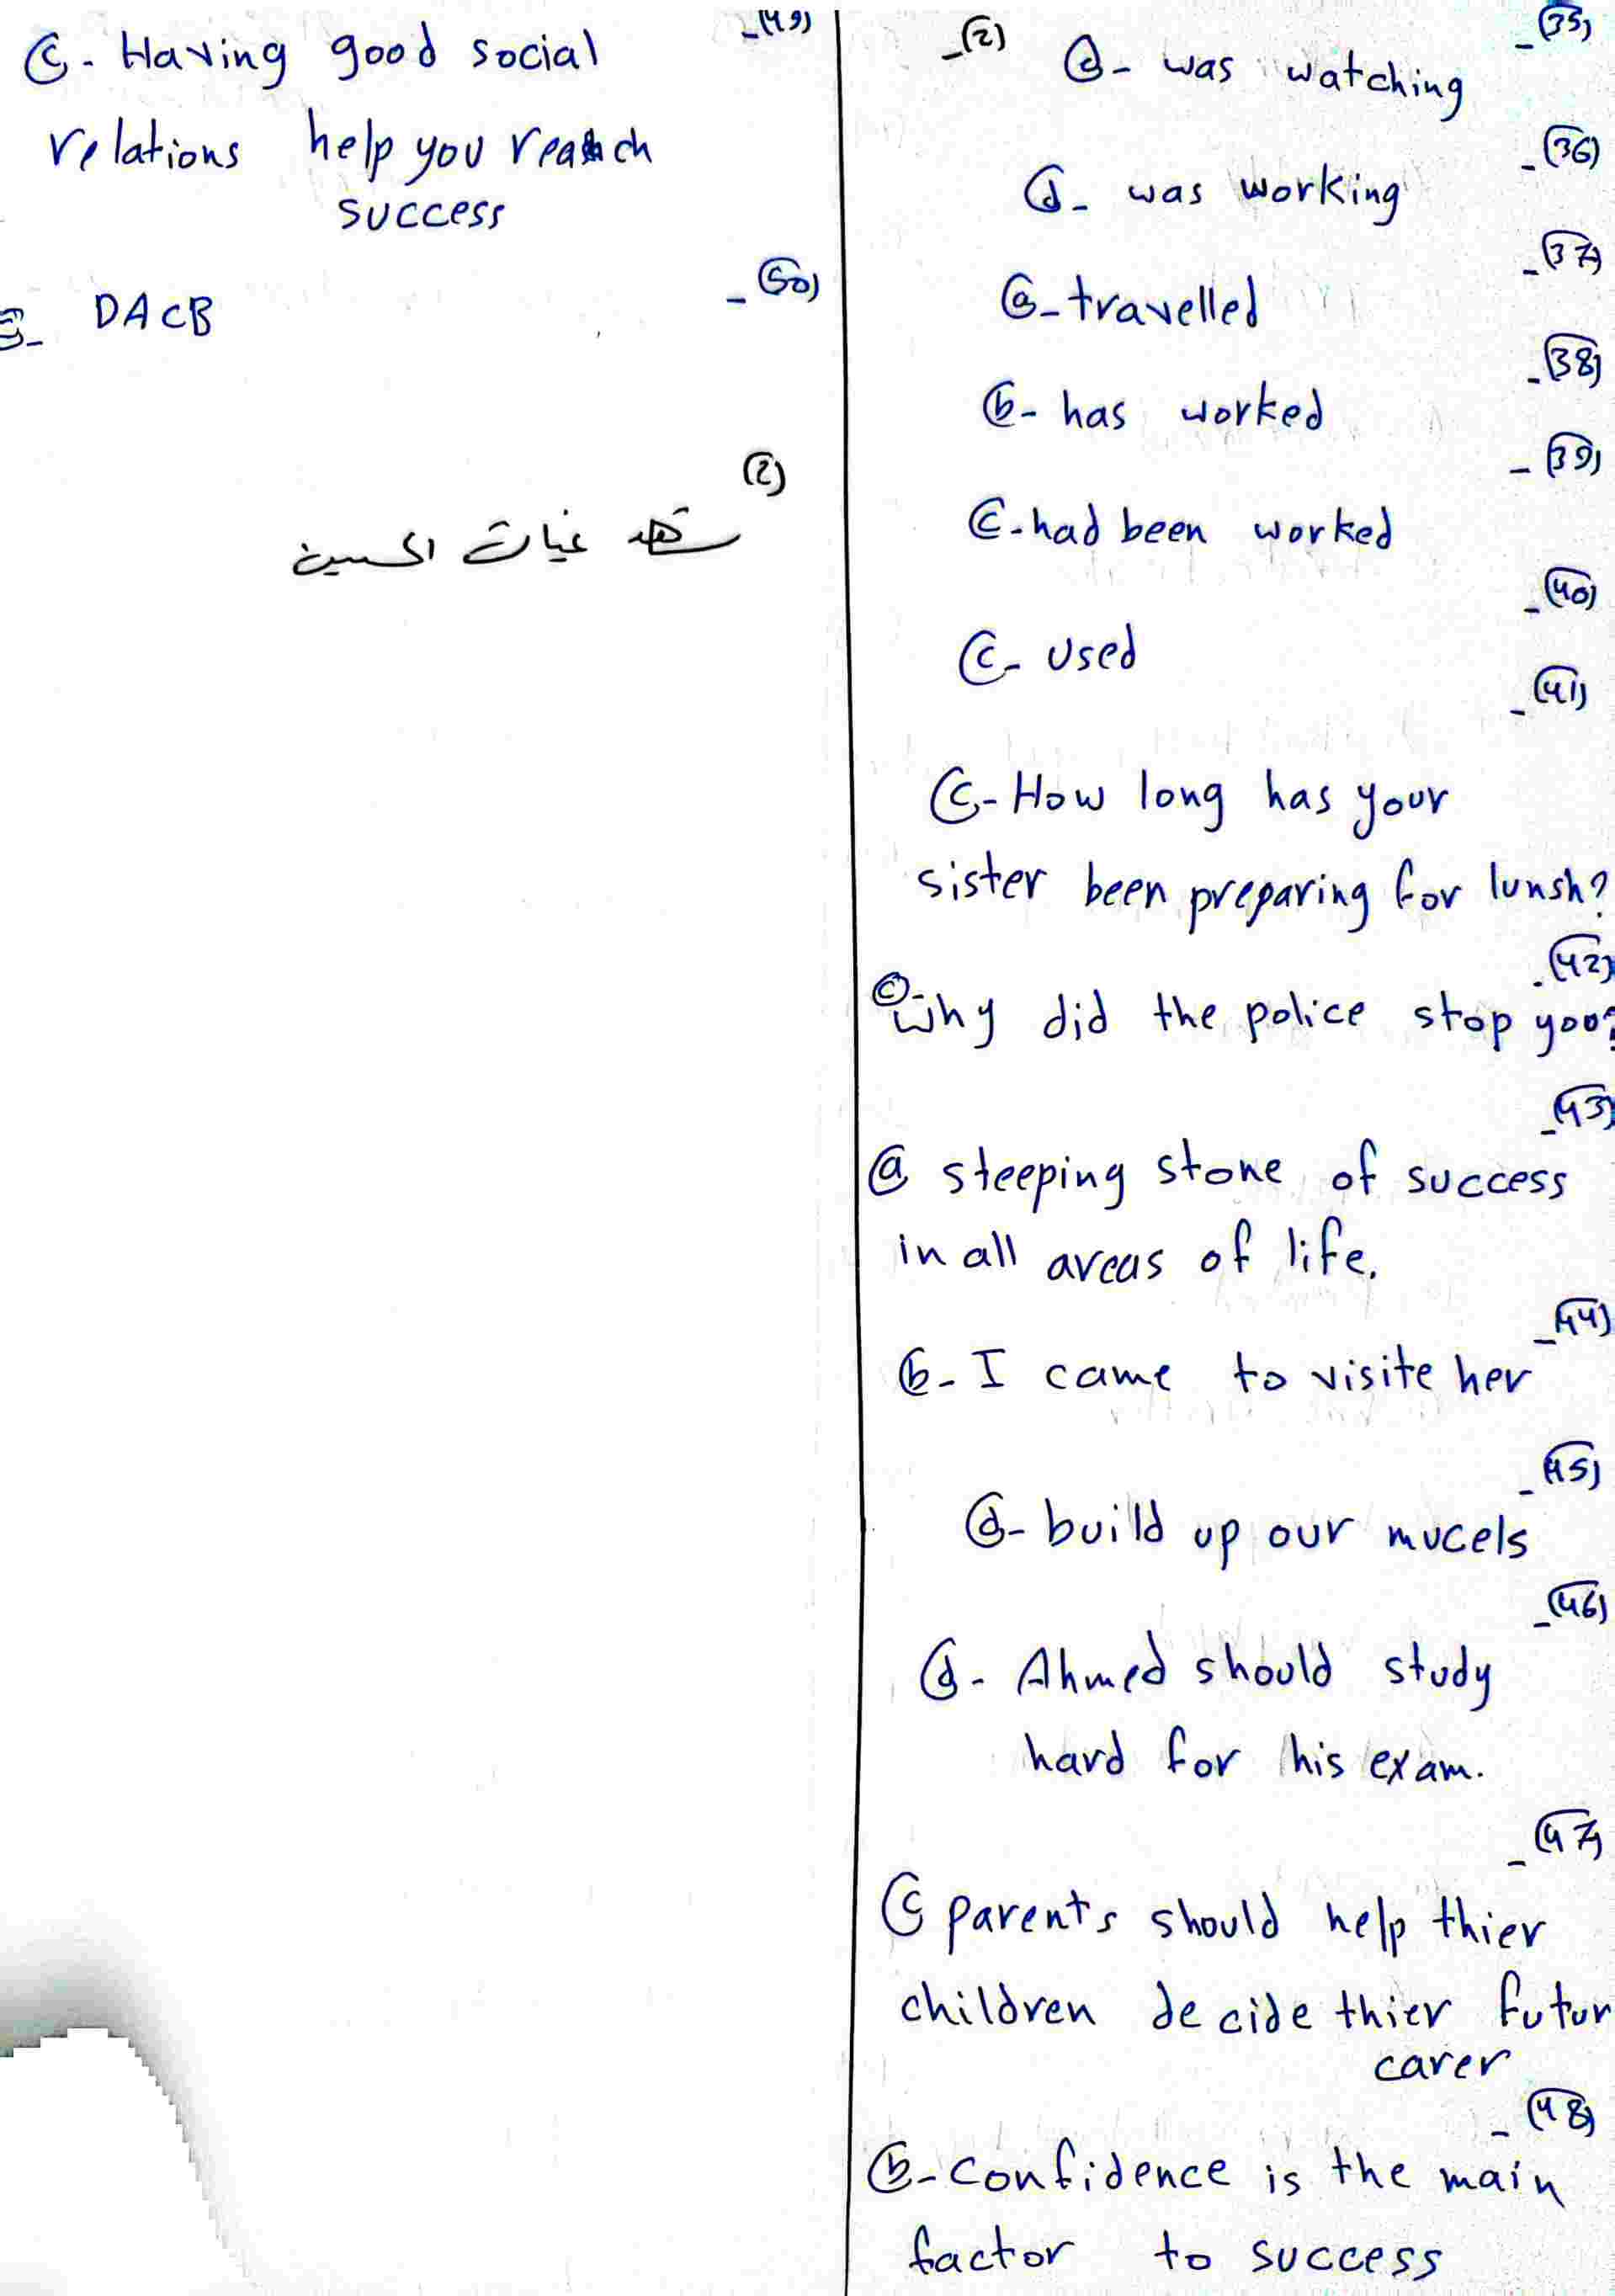 (2)_
(35)_
a_ was watching
(36)_
d_ was working
(37)_
a_ travelled
(38)_
b_ has worked
(39)_
c_ had been worked
(40)_
c_ used
(41)_
c_ How long has your
sister been preparing for lunsh?
(42)_
c_ Why did the police stop you?
(43)_
a steeping stone of success
in all areas of life.
(44)_
b_ I came to visite her
(45)_
d_ build up our mucels
(46)_
d_ Ahmed should study
hard for his exam.
(47)_
c parents should help thier
children decide thier futur
carer
(48)_
b_ confidence is the main
factor to success
(49)_
c_ Having good social
relations help you reach
success
(50)_
DACB
(2)
شهد غياث الحسين